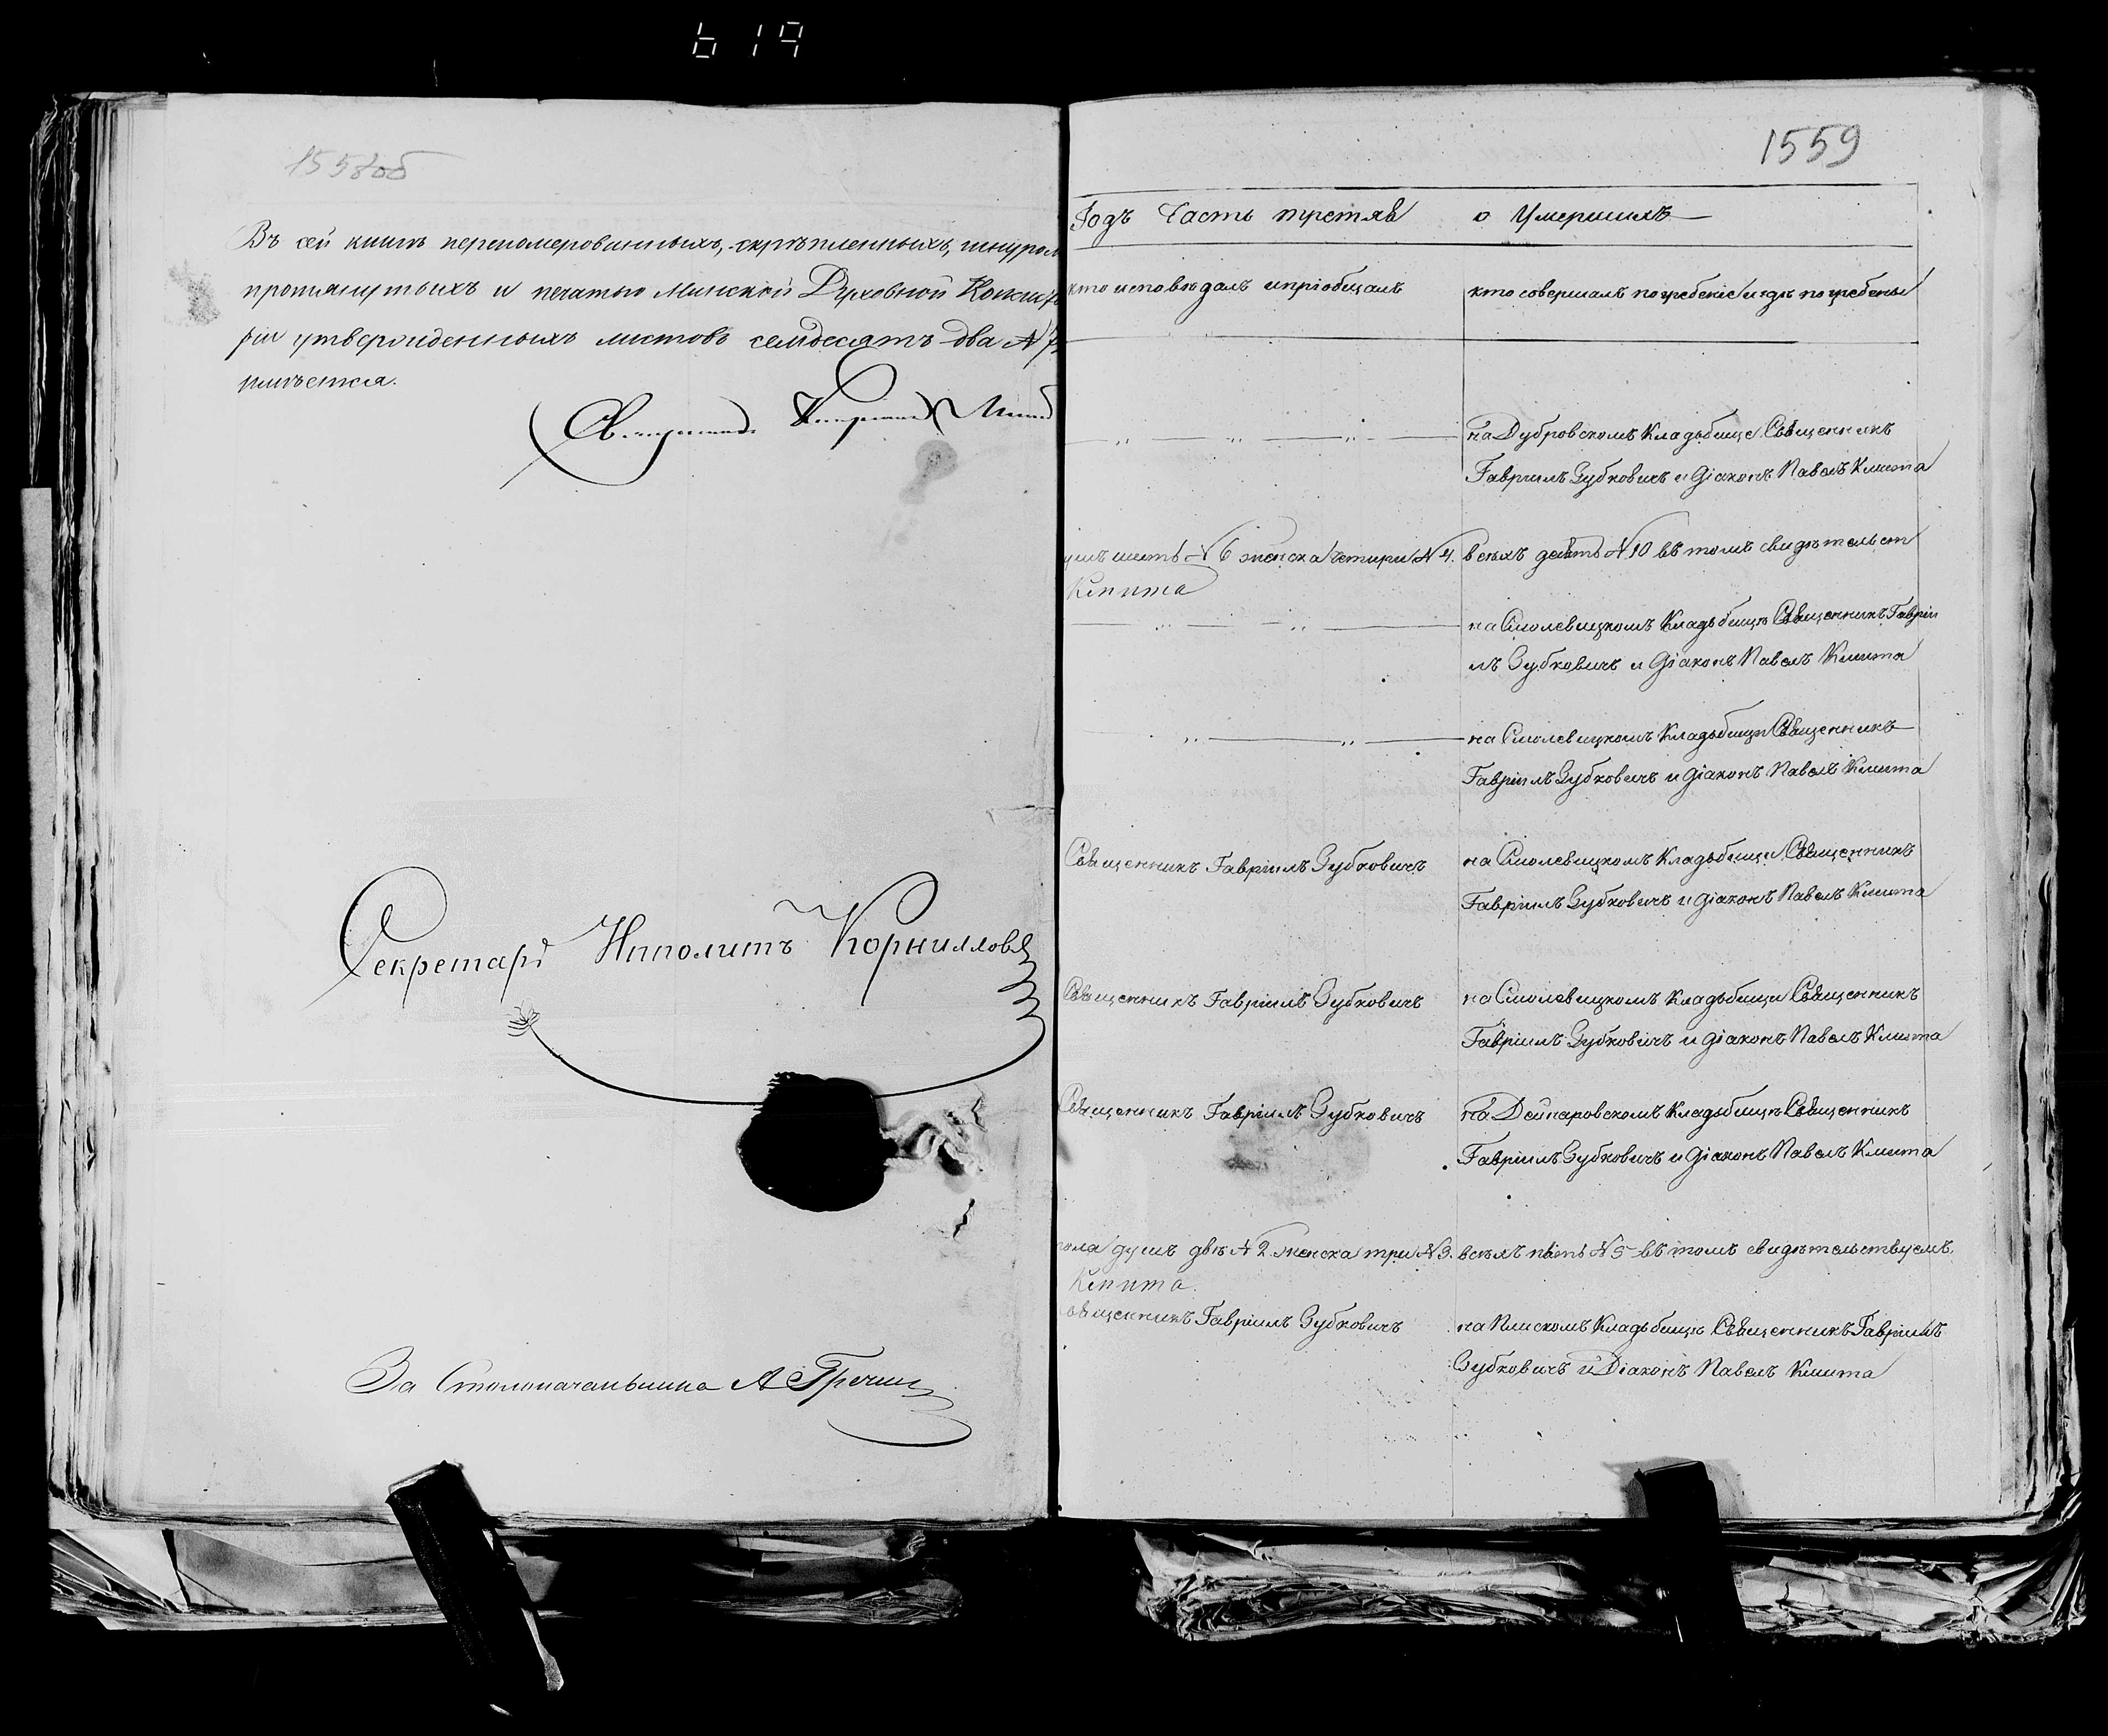 619
1558об
Въ сей книгѣ перенумерованныхъ, скрѣпленныхъ, шнуром
протянутыхъ и печатью Минской Духовной Консисто
ріи утвержденныхъ листовъ семдесятъ два №
Священникъ
Секретарь Ипполитъ Корниловъ
За Столоначальника А
1559
Годъ Часть третяя о Умершихъ
кто исповѣдалъ и пріобщалъ кто совершалъ погребеніе и гдѣ погребены
на Дубровскомъ Кладьбище Священникъ
Гавріилъ Зубковичъ и Діаконъ Павелъ Кмита
шесть № 6 женска четири № 4. всехъ десять № 10 въ томъ свидѣтельст
Кмита
на Смолевицкомъ Кладьбищѣ Священникъ Гавріи
лъ Зубковичъ и Діаконъ Павелъ Кмита
на Смолевицкомъ Кладьбищи Священникъ
Гавріилъ Зубковичъ и Діаконъ Павелъ Кмита
Священникъ Гавріилъ Зубковичъ на Смолевицкомъ Кладьбище Священникъ
Гавріилъ Зубковичъ и Діаконъ Павелъ Кмита
Священникъ Гавріилъ Зубковичъ на Смолевицкомъ Кладьбищи Священникъ
Гавріилъ Зубковичъ и Діаконъ Павелъ Кмита
Священникъ Гавріилъ Зубковичъ на Дехнаровскомъ Кладьбищѣ Священникъ
Гавріилъ Зубковичъ и Діаконъ Павелъ Кмита
пола душъ двѣ № 2 женска три № 3. всехъ пять № 5 въ томъ свидѣтельствуемъ.
Кмита.
Священникъ Гавріилъ Зубковичъ на Плискомъ Кладьбищѣ Священникъ Гавріилъ
Зубковичъ и Діаконъ Павелъ Кмита